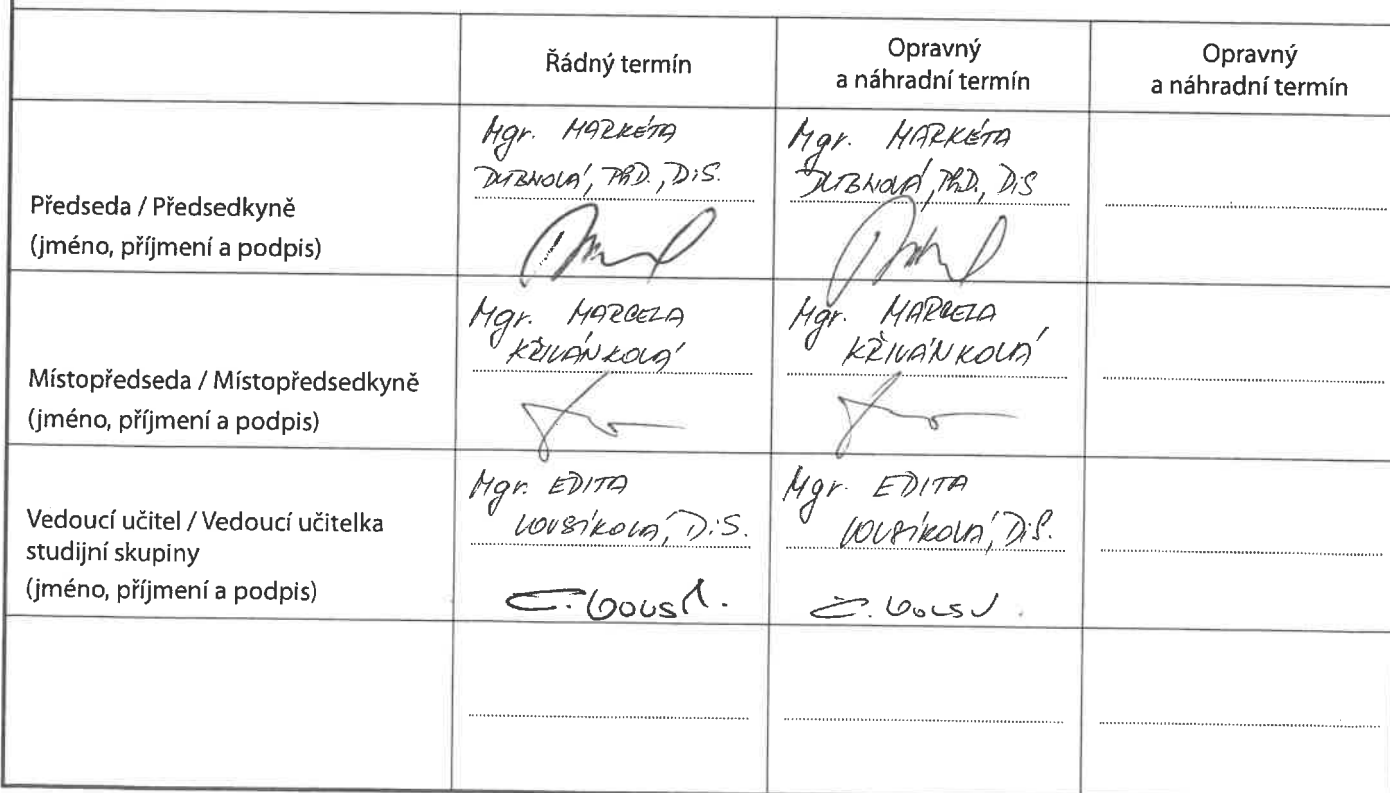 Řádný termín
Opravný
a náhradní termín
Opravný
a náhradní termín
Předseda / Předsedkyně
(jméno, příjmení a podpis)
Mgr. MARKÉTA
DUBNOVÁ, PhD., DiS.
Mgr. MARKÉTA
DUBNOVÁ, PhD., DiS
Místopředseda / Místopředsedkyně
(jméno, příjmení a podpis)
Mgr. MARCELA
KŘIVÁNKOVÁ
Mgr. MARCELA
KŘIVÁNKOVÁ
Vedoucí učitel / Vedoucí učitelka
studijní skupiny
(jméno, příjmení a podpis)
Mgr. EDITA
DiS.
Mgr. EDITA
DiS.